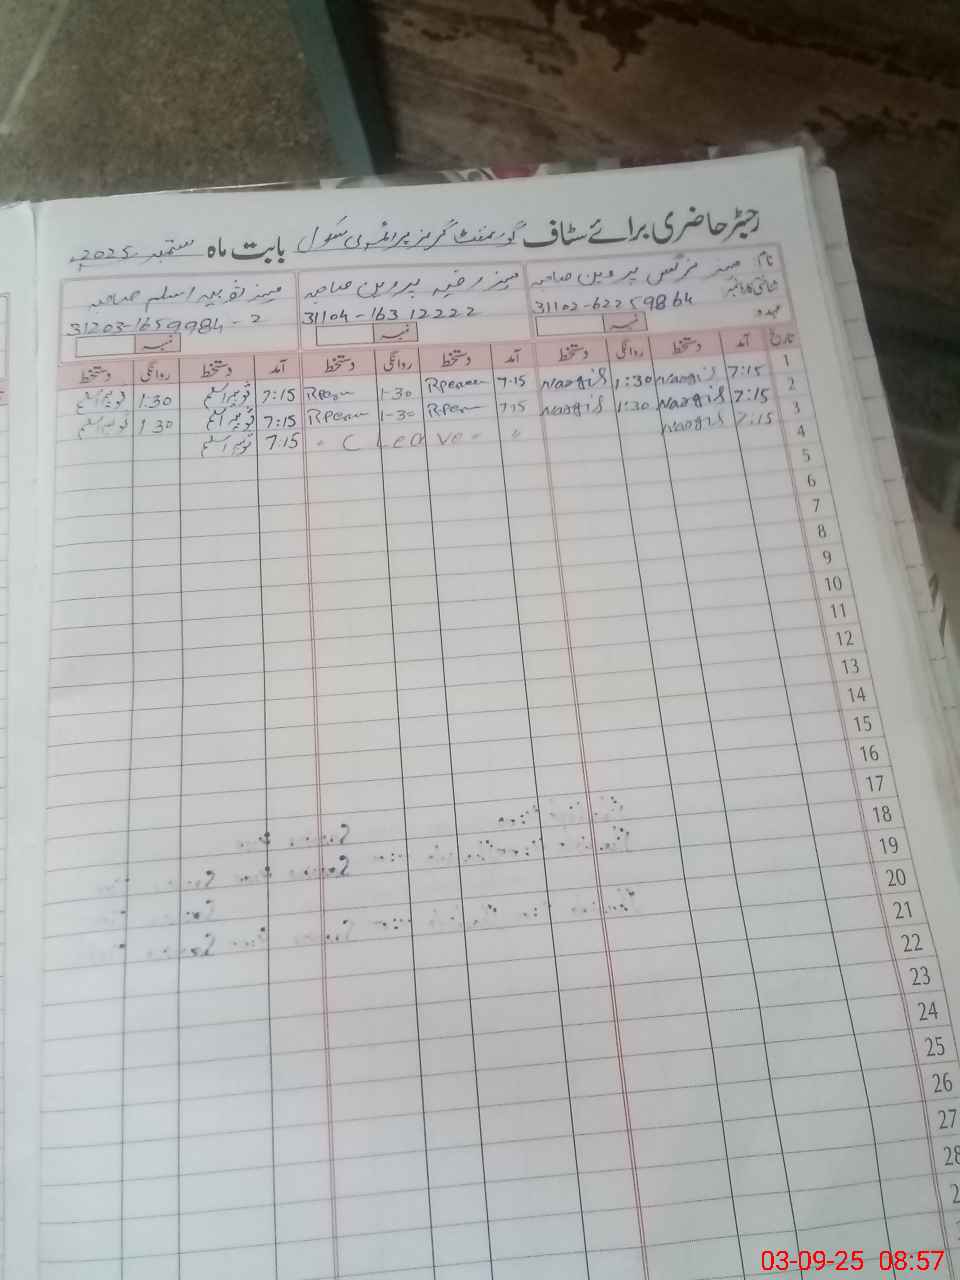 رجسٹر حاضری برائے سٹاف گورنمنٹ گرلز پرائمری سکول بابت ماہ ستمبر 2025ء
نام مسز نرگس پروین صاحبہ مسز رقیہ پروین صاحبہ مسز ثوبیہ اسلم صاحبہ
شناختی کارڈ نمبر 31102-62259864 31104-16312222 31203-1659984-2
عہدہ
تاریخ آمد دستخط روانگی دستخط آمد دستخط روانگی دستخط آمد دستخط روانگی دستخط
1 7:15 Nargis 1:30 Nargis 7-15 RPeveen 1-30 RPeven 7:15 ثوبیہ اسلم 1:30 ثوبیہ اسلم
2 7:15 Nargis 1:30 Nargis 7:15 RPerv 1-30 RPerv 7:15 ثوبیہ اسلم 1:30 ثوبیہ اسلم
3 7:15 Nargis " C Leave " 7:15 ثوبیہ اسلم
4
5
6
7
8
9
10
11
12
13
14
15
16
17
18
19
20
21
22
23
24
25
26
27
28
03-09-25 08:57